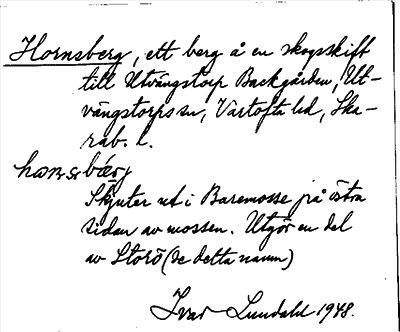 Hornsberg, ett berg å en skogsskift
till Utvängstorp Backgården, Ut-
vängstorps sn, Vartofta hd, Ska-
rab. l.
Skjuter ut i Baremosse på östra
sidan av mossen. Utgör en del
av Storö (se detta namn)
Ivar Lundahl 1948.